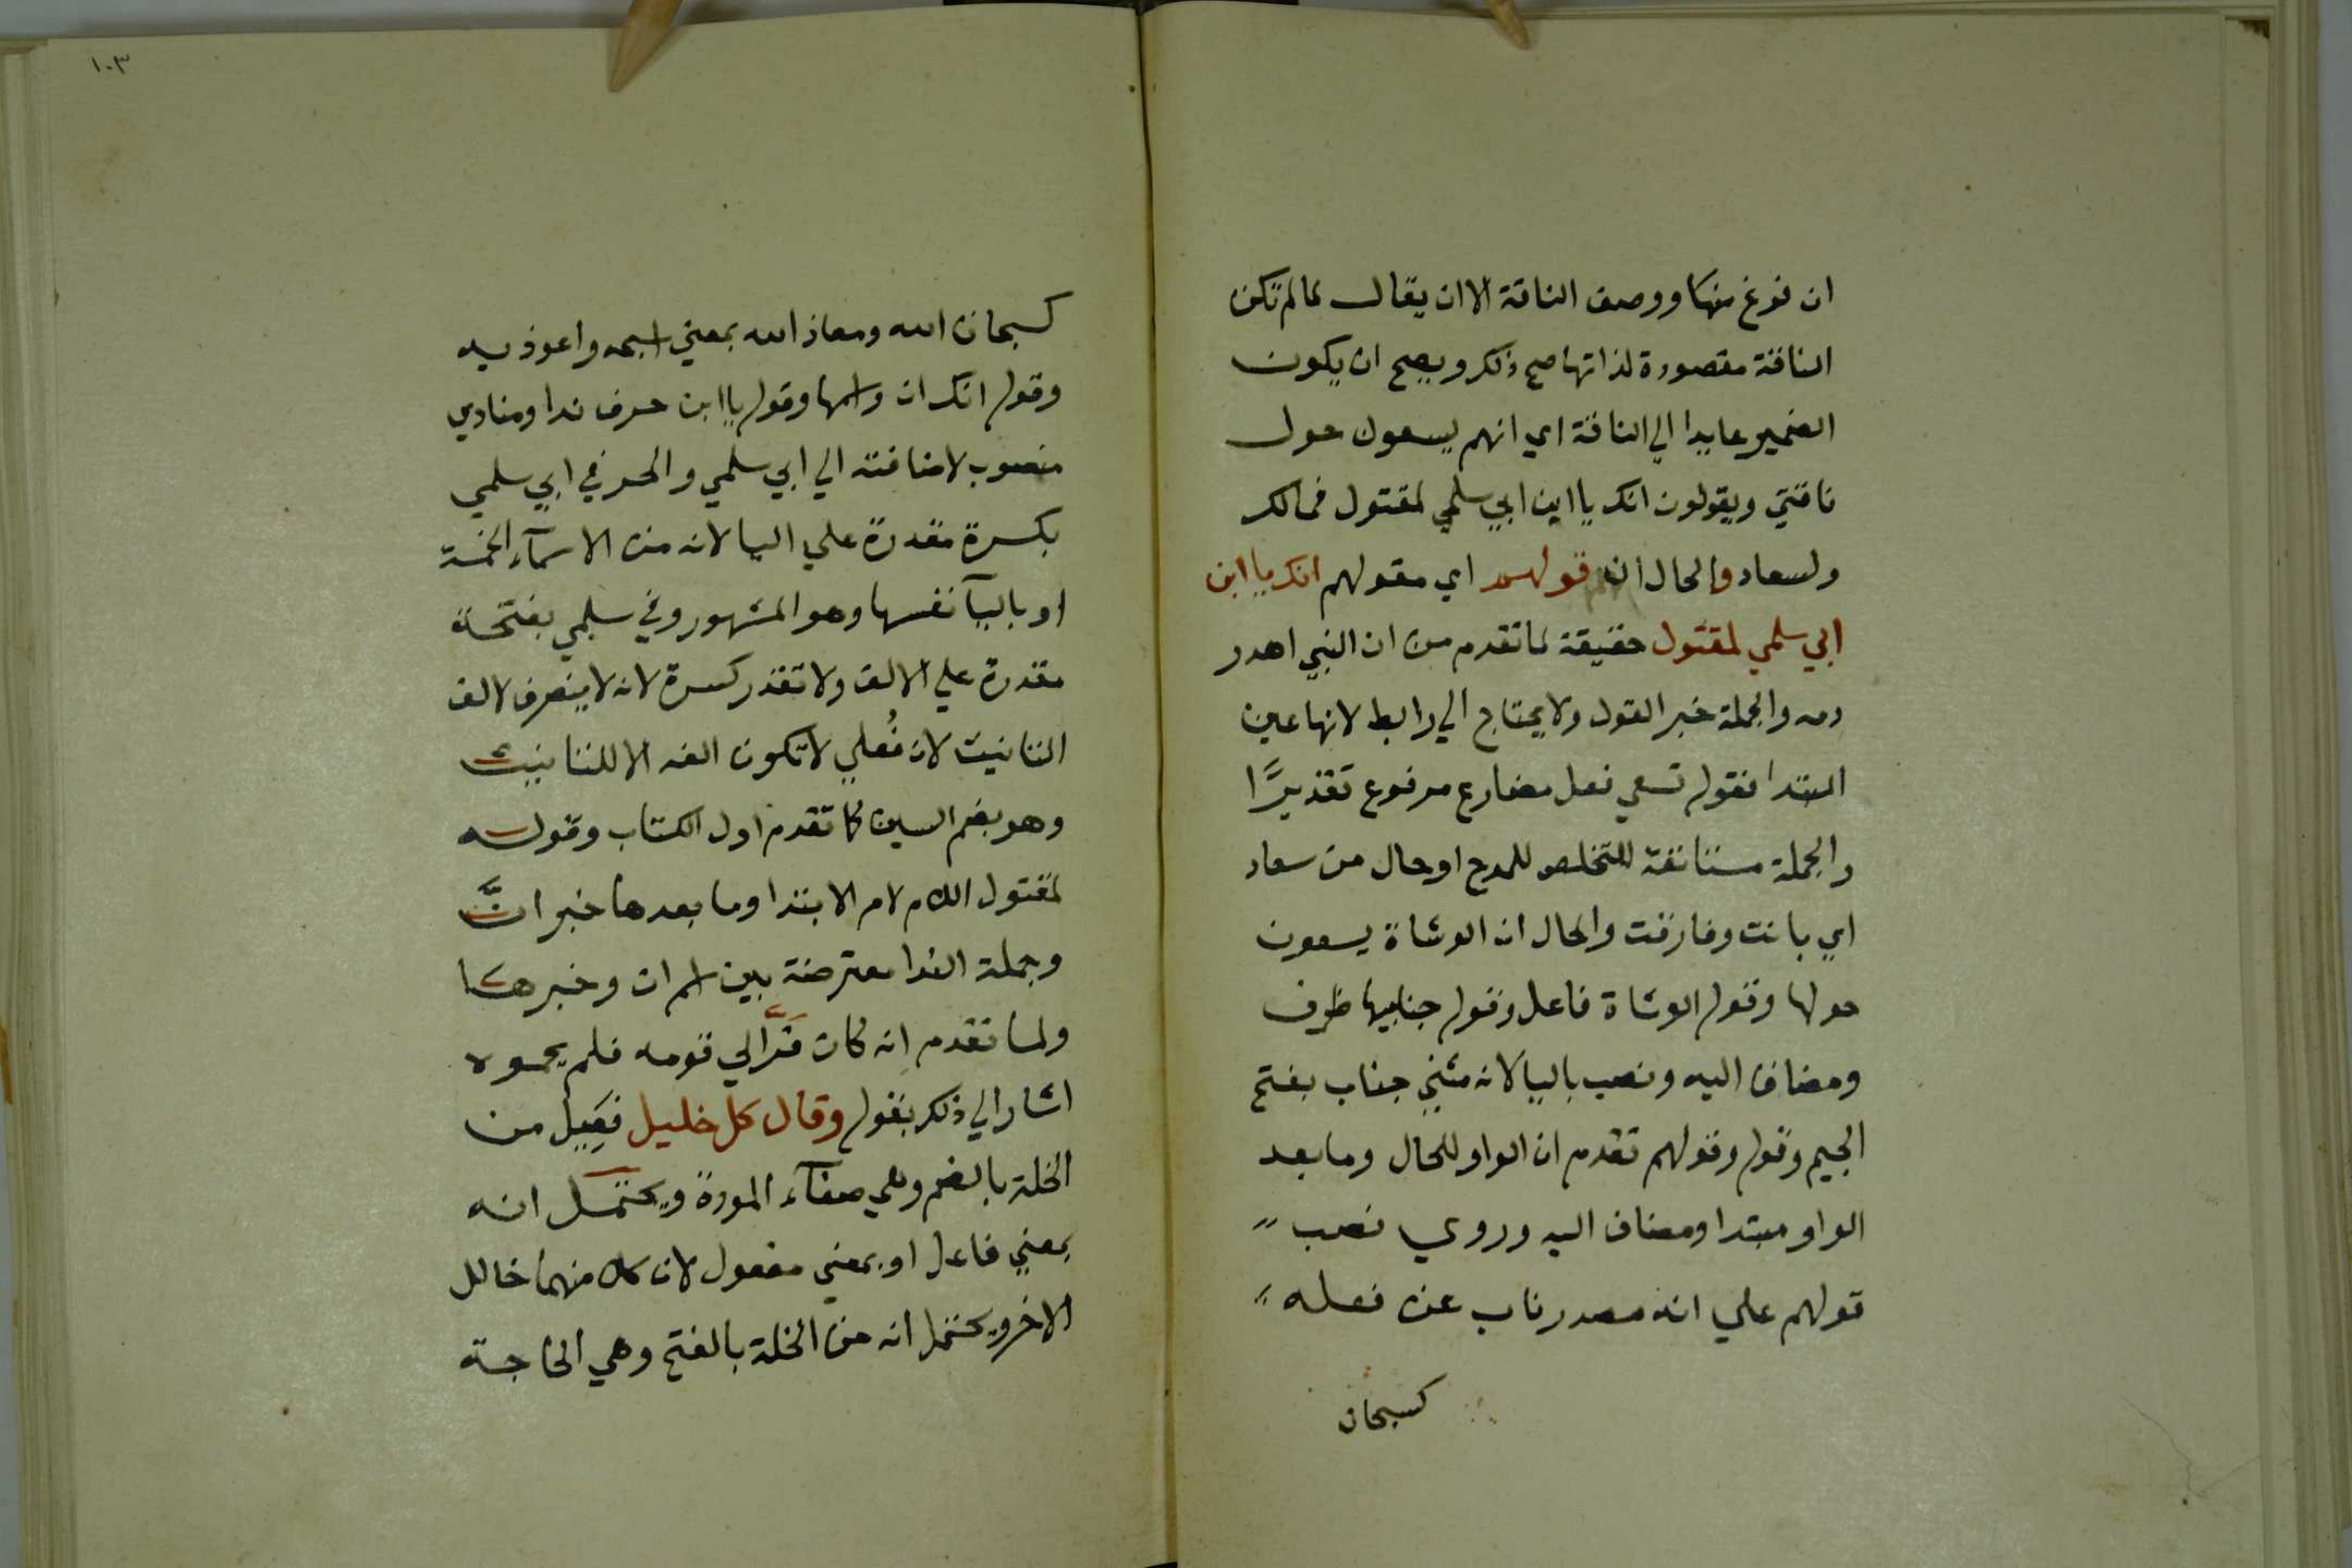 ان فرغ منها ووصف الناقة الا ان يقال لما لم تكن
الناقة مقصورة لذاتها صح ذلك ويصح ان يكون
الضمير عايدا الي الناقة اي انهم يسعون حول
ناقتي ويقولون انك يا ابن ابي سلمي لمقتول فمالك
ولسعاد والحال ان قولهم اي مقولهم انك يا ابن
ابي سلمي لمقتول حقيقة لما تقدم من ان النبي اهدر
دمه والجملة خبر القول ولا يحتاج الي رابط لانها عين
المبتدا فقوله تسعي فعل مضارع مرفوع تقديرًا
والجملة مستانفة للتخلص للمدح او حال من سعاد
اي بانت وفارقت والحال ان الوشاة يسعون
حولها وقوله الوشاة فاعل وقوله جنابيها ظرف
ومضاف اليه ونصب باليا لانه مثني جناب بفتح
الجيم وقوله وقولهم تقدم ان الواو للحال وما بعد
الواو مبتدا ومضاف اليه وروي نصب
قولهم علي انه مصدر ناب عن فعله
كسبحان
١٠٣
كسبحان الله ومعاذ الله بمعني اسبحه واعوذ به
وقوله انك ان واسمها وقوله يا ابن حرف ندا ومنادي
منصوب لاضافته الي ابي سلمي والجر في ابي سلمي
بكسرة مقدرة علي اليا لانه من الاسمآء الخمسة
او باليآ نفسها وهو المشهور وفي سلمي بفتحة
مقدرة علي الالف ولا تقدر كسرة لانه لا ينصرف لالف
التانيث لان فُعلي لا تكون الفه الا للتانيث
وهو بضم السين كما تقدم اول الكتاب وقوله
لمقتول اللام لام الابتدا وما بعدها خبر انَّ
وجملة الندا معترضة بين اسم ان وخبرها
ولما تقدم انه كان فَرَّ الي قومه فلم يحموه
اشار الي ذلك بقوله وقال كل خليل فَعِيل من
الخلة بالضم وهي صفآء المودة ويحتمل انه
بمعني فاعل او بمعني مفعول لان كلا منهما خالل
الاخر ويحتمل انه من الخلة بالفتح وهي الحاجة